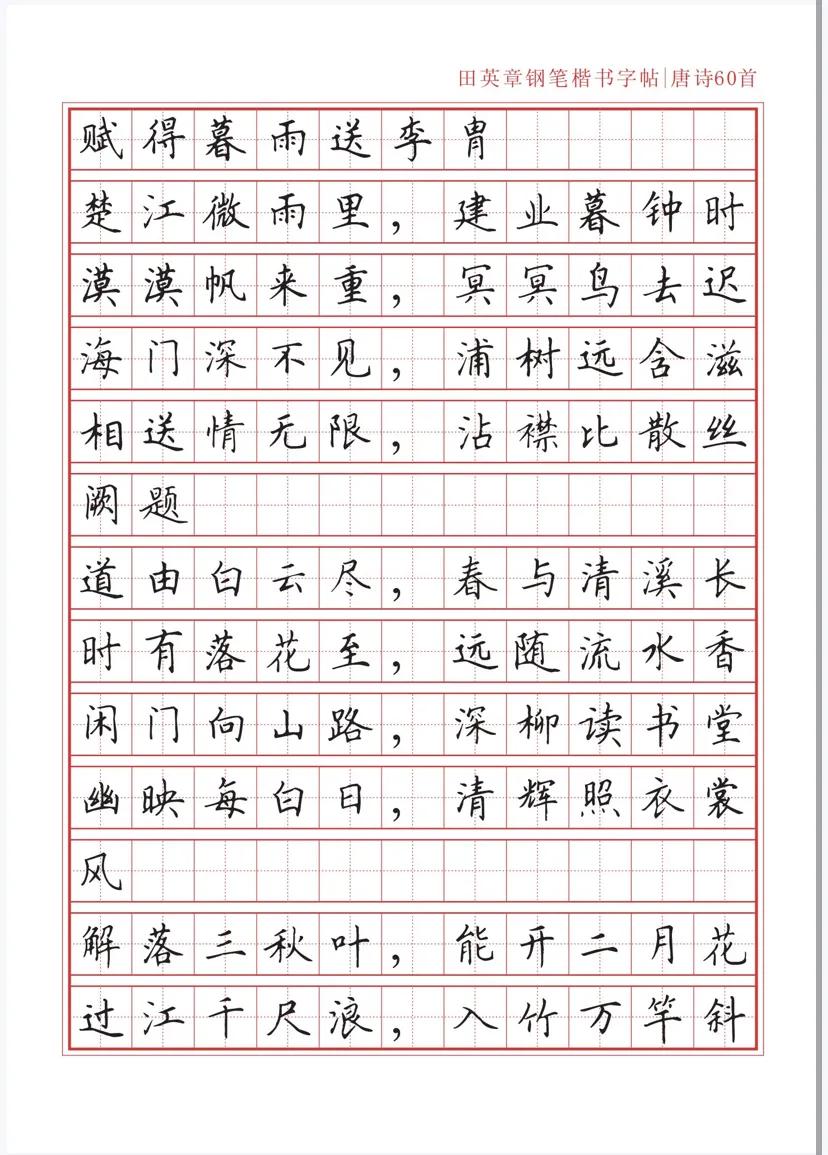 田英章钢笔楷书字帖|唐诗60首
赋得暮雨送李胄
楚江微雨里，建业暮钟时
漠漠帆来重，冥冥鸟去迟
海门深不见，浦树远含滋
相送情无限，沾襟比散丝
阙题
道由白云尽，春与清溪长
时有落花至，远随流水香
闲门向山路，深柳读书堂
幽映每白日，清辉照衣裳
风
解落三秋叶，能开二月花
过江千尺浪，入竹万竿斜